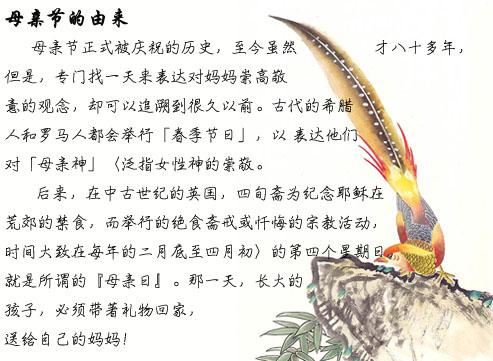 母亲节的由来
母亲节正式被庆祝的历史，至今虽然 才八十多年，
但是，专门找一天来表达对妈妈崇高敬
意的观念，却可以追溯到很久以前。古代的希腊
人和罗马人都会举行「春季节日」，以 表达他们
对「母亲神」〈泛指女性神的崇敬。
后来，在中古世纪的英国，四旬斋为纪念耶稣在
荒郊的禁食，而举行的绝食斋戒或忏悔的宗教活动，
时间大致在每年的二月底至四月初〉的第四个星期日，
就是所谓的『母亲日』。那一天，长大的
孩子，必须带著礼物回家，
送给自己的妈妈！